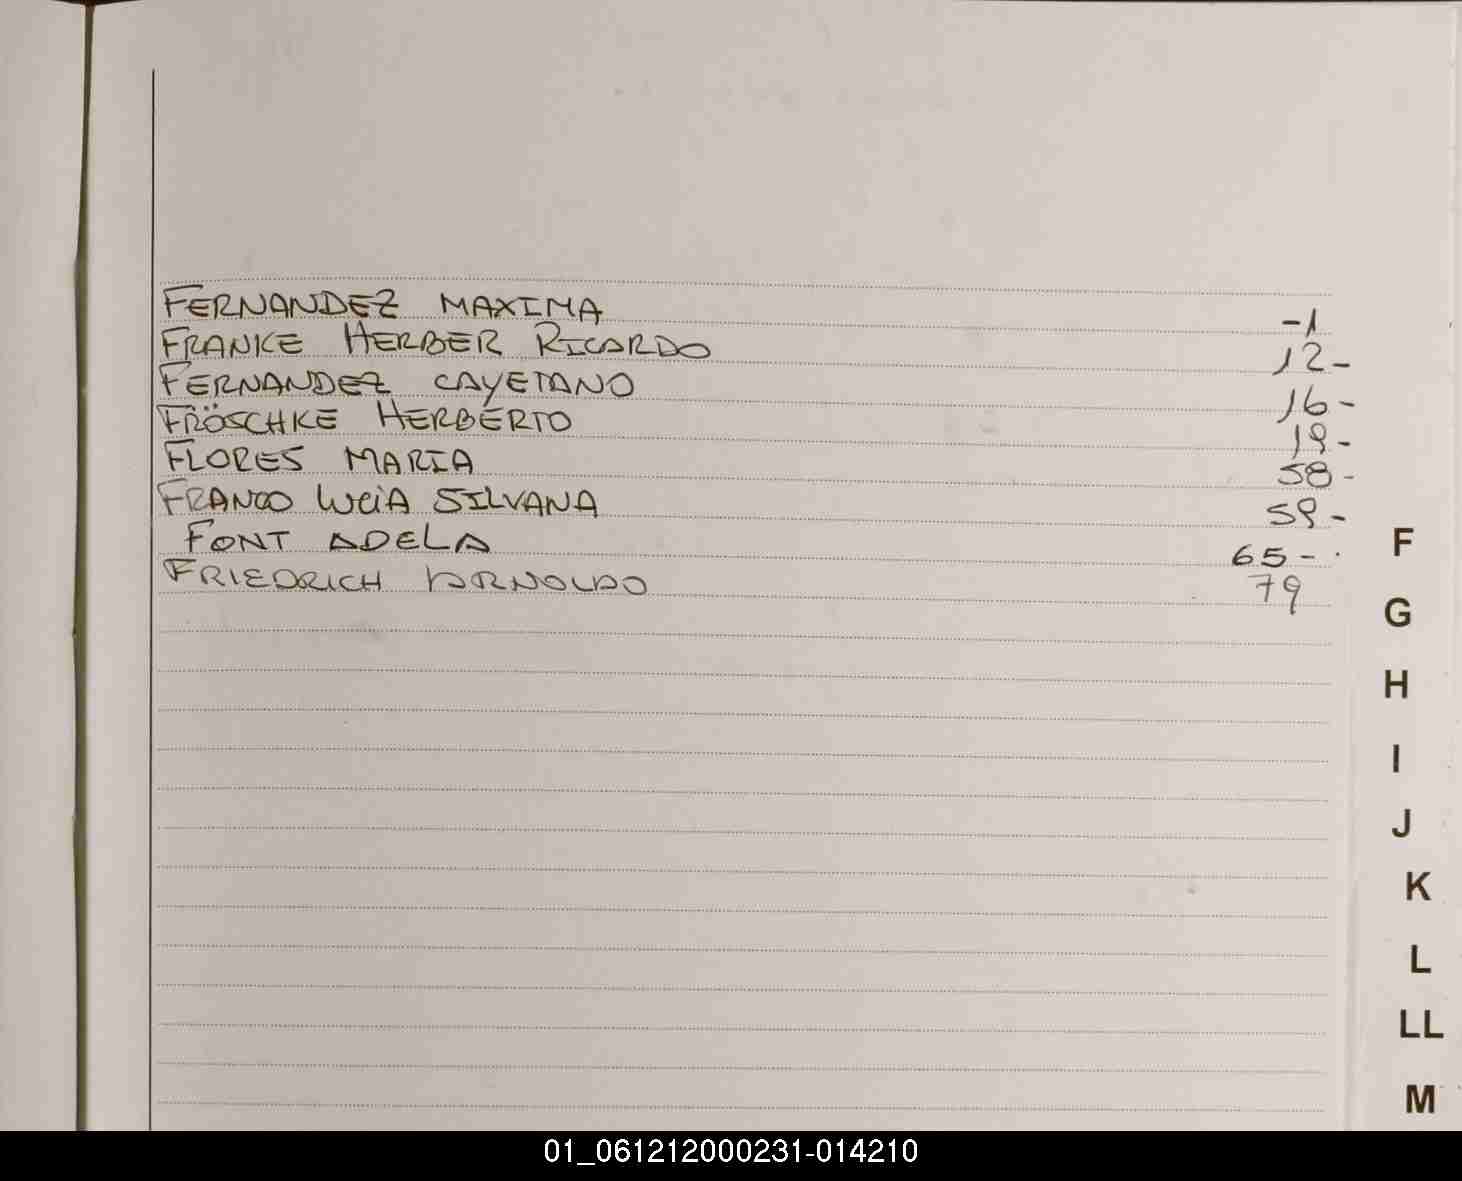 FERNANDEZ MAXIMA -1
FRANKE HERBER RICARDO 12-
FERNANDEZ CAYETANO 16-
FRÖSCHKE HERBERTO 19-
FLORES MARIA 58-
FRANCO LUCIA SILVANA 59-
FONT ADELA 65-
FRIEDRICH ARNOLDO 79
F
G
H
I
J
K
L
LL
M
01_061212000231-014210